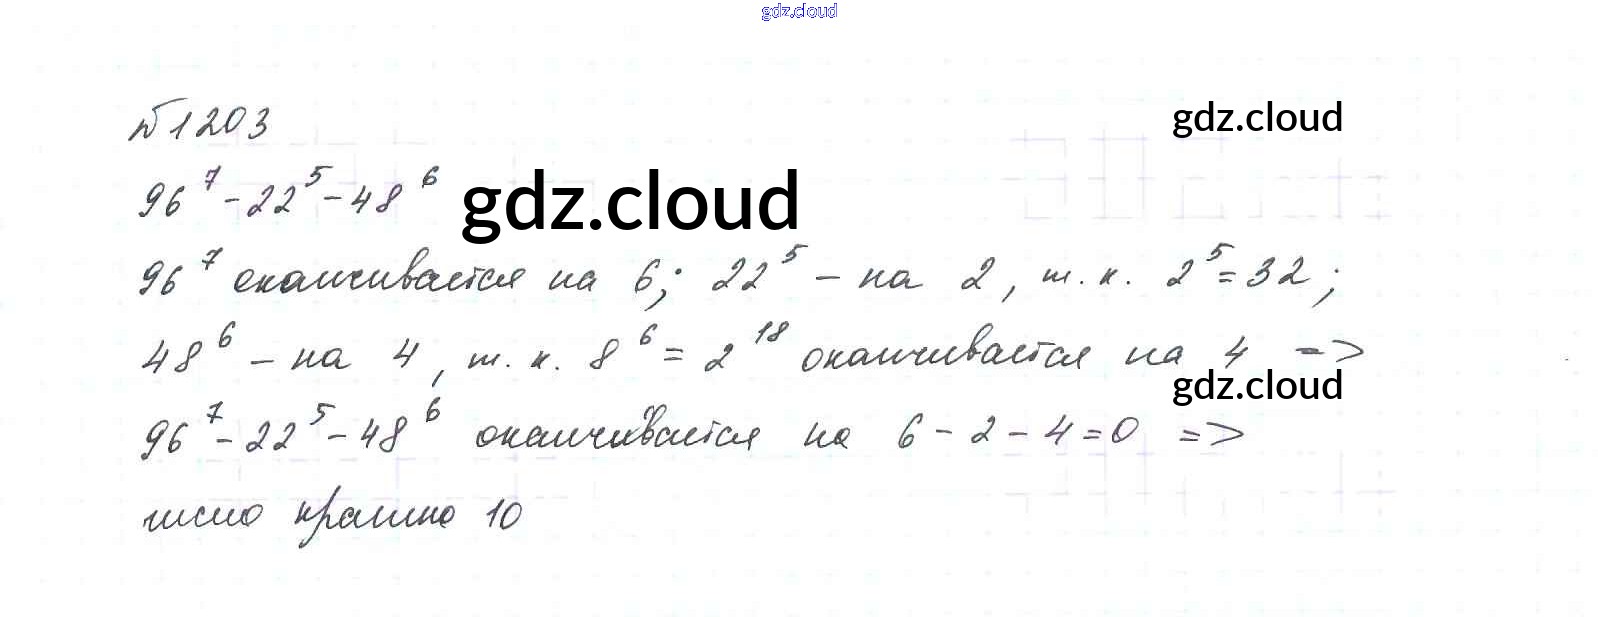 gdz.cloud
№1203
gdz.cloud
96⁷-22⁵-48⁶
gdz.cloud
96⁷ оканчивается на 6; 22⁵ – на 2, т.к. 2⁵=32;
48⁶ – на 4, т.к. 8⁶=2¹⁸ оканчивается на 4 =>
gdz.cloud
96⁷-22⁵-48⁶ оканчивается на 6-2-4=0 =>
число кратно 10